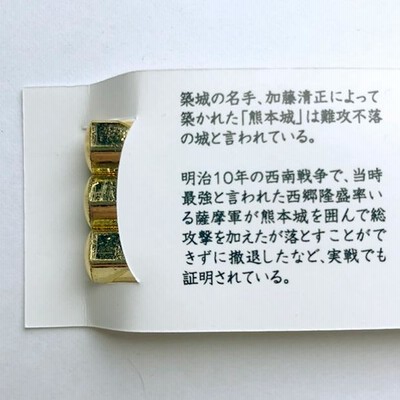 築城の名手、加藤清正によって
築かれた「熊本城」は難攻不落
の城と言われている。
明治10年の西南戦争で、当時
最強と言われた西郷隆盛率い
る薩摩軍が熊本城を囲んで総
攻撃を加えたが落とすことがで
きずに撤退したなど、実戦でも
証明されている。